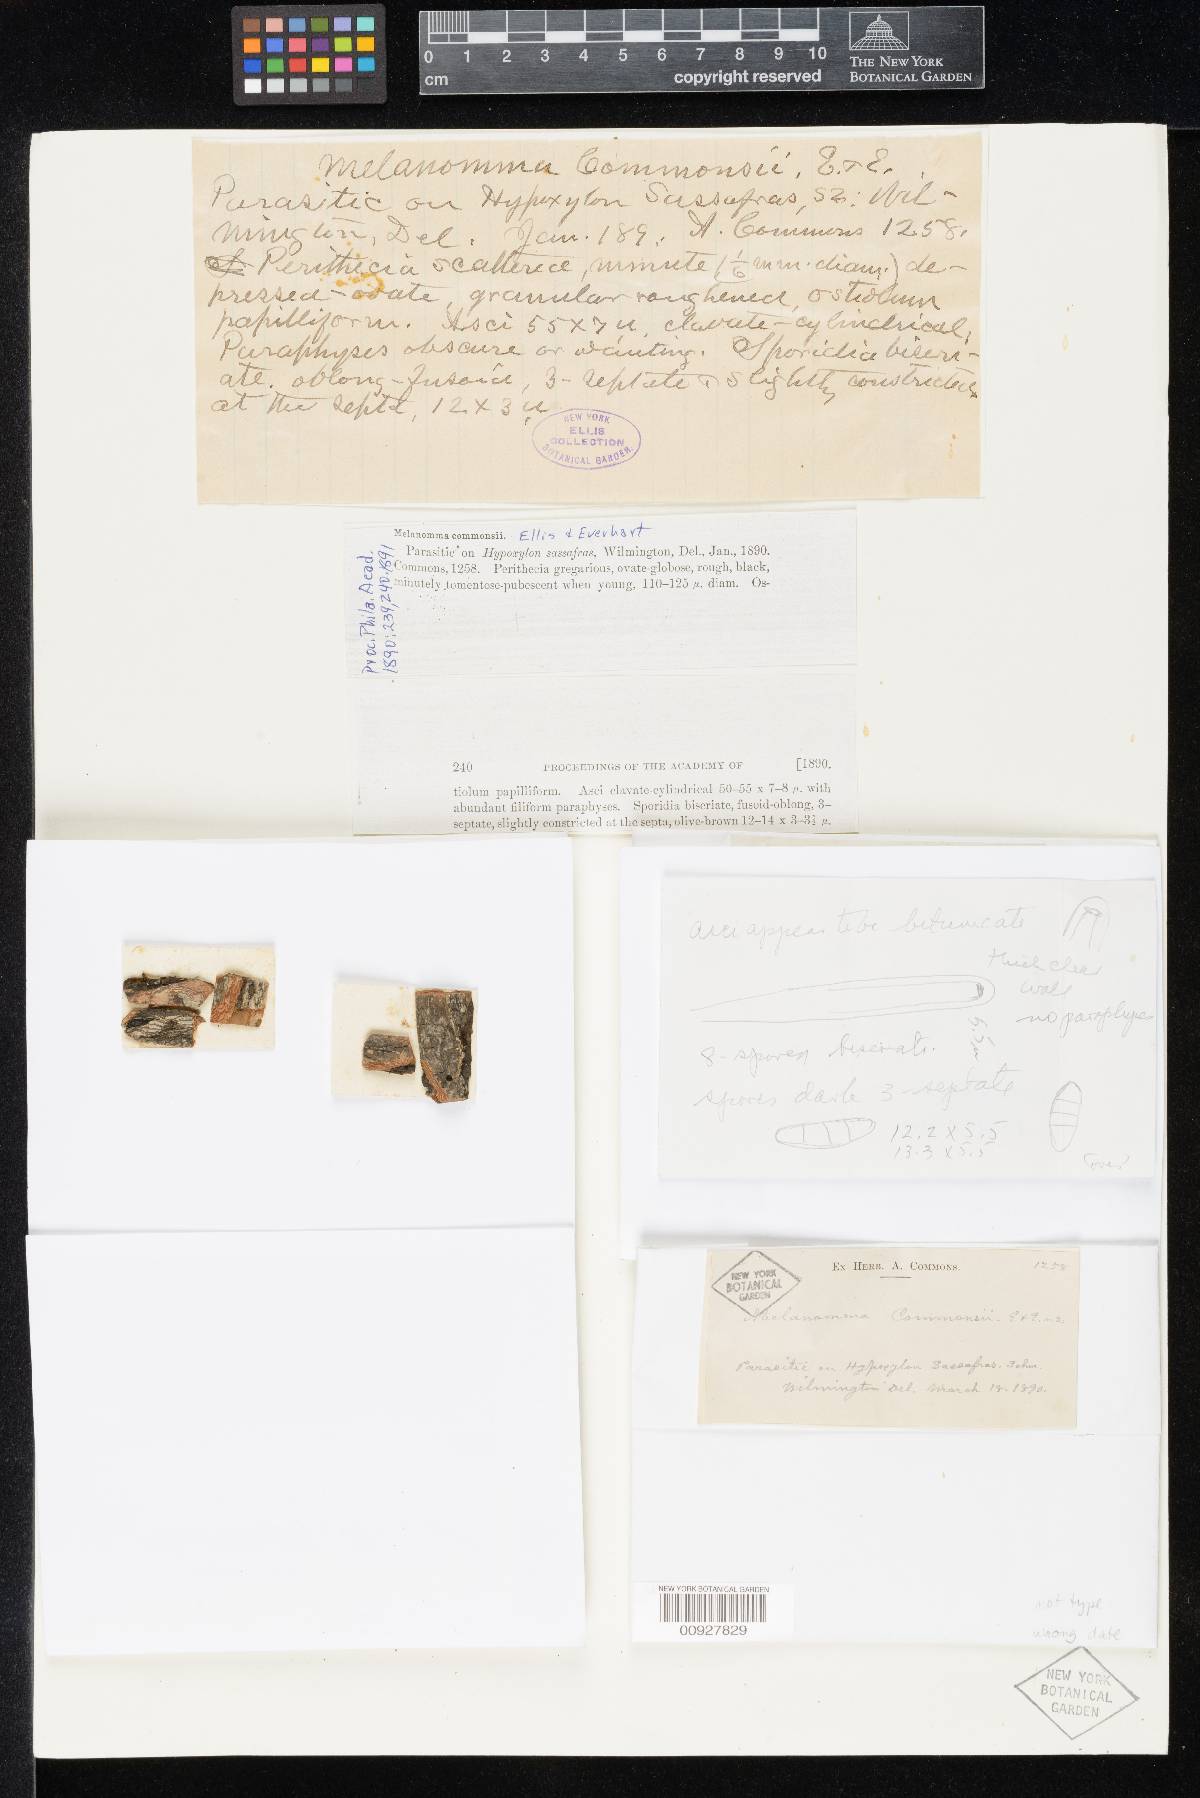 0 1 2 3 4 5 6 7 8 9 10
cm
copyright reserved
THE NEW YORK
BOTANICAL GARDEN
Melanomma Commonsii, E. & E.
Parasitic on Hypoxylon Sassafras, Sz: Wil-
mington, Del. Jan. 189. A. Commons 1258.
Perithecia scattered, minute (1/6 mm. diam.) de-
pressed-ovate, granular roughened, ostiolum
papilliform. Asci 55 x 7 u, clavate-cylindrical,
Paraphyses obscure or wanting. Sporidia biseri-
ate. oblong-fusoid, 3-septate & slightly constricted
at the septa, 12 x 3 u
NEW YORK
ELLIS
COLLECTION
BOTANICAL GARDEN.
Melanomma commonsii. Ellis & Everhart
Parasitic on Hypoxylon sassafras, Wilmington, Del., Jan., 1890.
Commons, 1258. Perithecia gregarious, ovate-globose, rough, black,
minutely tomentose-pubescent when young, 110–125 µ. diam. Os-
Proc. Phila. Acad.
1890: 239, 240. 1891
240 PROCEEDINGS OF THE ACADEMY OF [1890.
tiolum papilliform. Asci clavate-cylindrical 50–55 x 7–8 µ. with
abundant filiform paraphyses. Sporidia biseriate, fusoid-oblong, 3-
septate, slightly constricted at the septa, olive-brown 12–14 x 3–3½ µ.
Asci appear to be bitunicate
thick clear
wall
no paraphyses
5.5 u
8-spored biseriate.
spores dark 3-septate
12.2 x 5.5
13.3 x 5.5
NEW YORK
BOTANICAL
GARDEN
EX HERB. A. COMMONS.
1258
Melanomma Commonsii. E & E. n.s.
Parasitic on Hypoxylon Sassafras. Schw.
Wilmington Del. March 18. 1890.
NEW YORK BOTANICAL GARDEN
00927829
not type
wrong date
NEW YORK
BOTANICAL
GARDEN